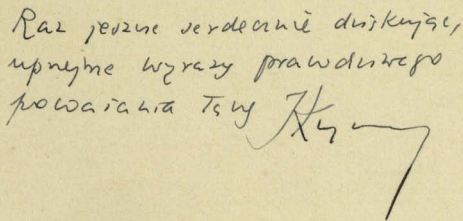 Raz jeszcze serdecznie dziękując,
uprzejme wyrazy prawdziwego
poważania łączę